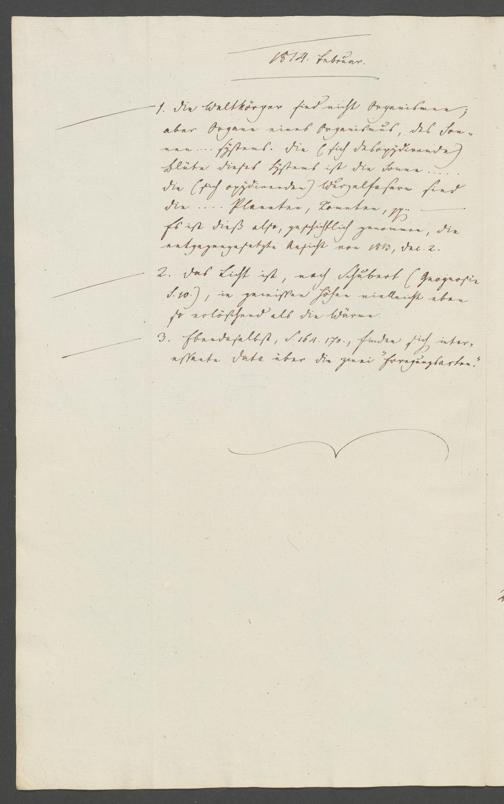 1814. Februar.
1. Die Weltkörper sind nicht Organismen,
aber Organe eines Organismus, des Son-
nen ... systems. Die (sich desoxydirende)
Blüte dieses Systems ist die Sonne .....
die (sich oxydirenden) Wurzelfasern sind
die ..... Planeten, Kometen, pp. —
Es ist dieß also, geschichtlich genommen, die
entgegengesetzte Ansicht von 1813, Dec. 2.
2. Das Licht ist, nach Schubert (Geognosie
S. 10.), in gewissen Höhen vielleicht eben
so erlöschend als die Wärme.
3. Ebendaselbst, S. 164. 170., finden sich inter-
essante Data über die zwei "Erregungsarten."